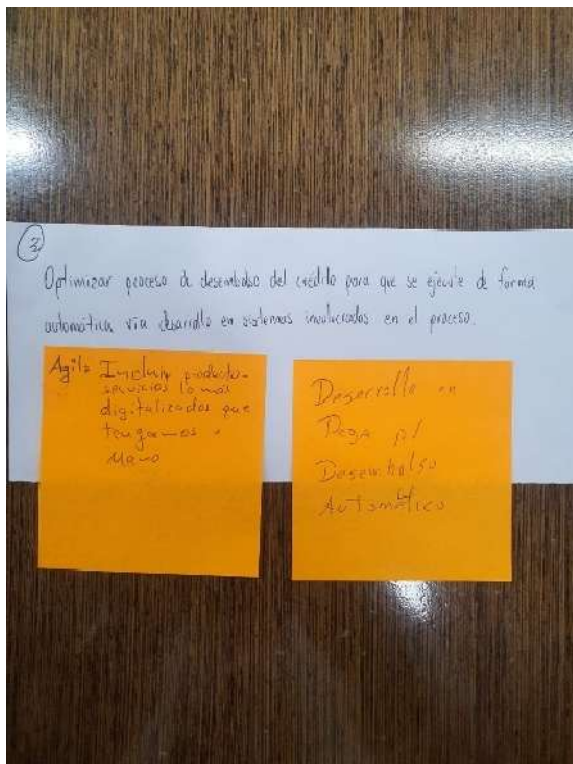 3
Optimizar proceso de desembolso del crédito para que se ejecute de forma
automática vía desarrollo en sistemas involucrados en el proceso.
Agil: Incluir productos-
servicios lo mas
digitalizados que
tengamos a
Mano
Desarrollo en
Pega p/
Desembolso
Automático